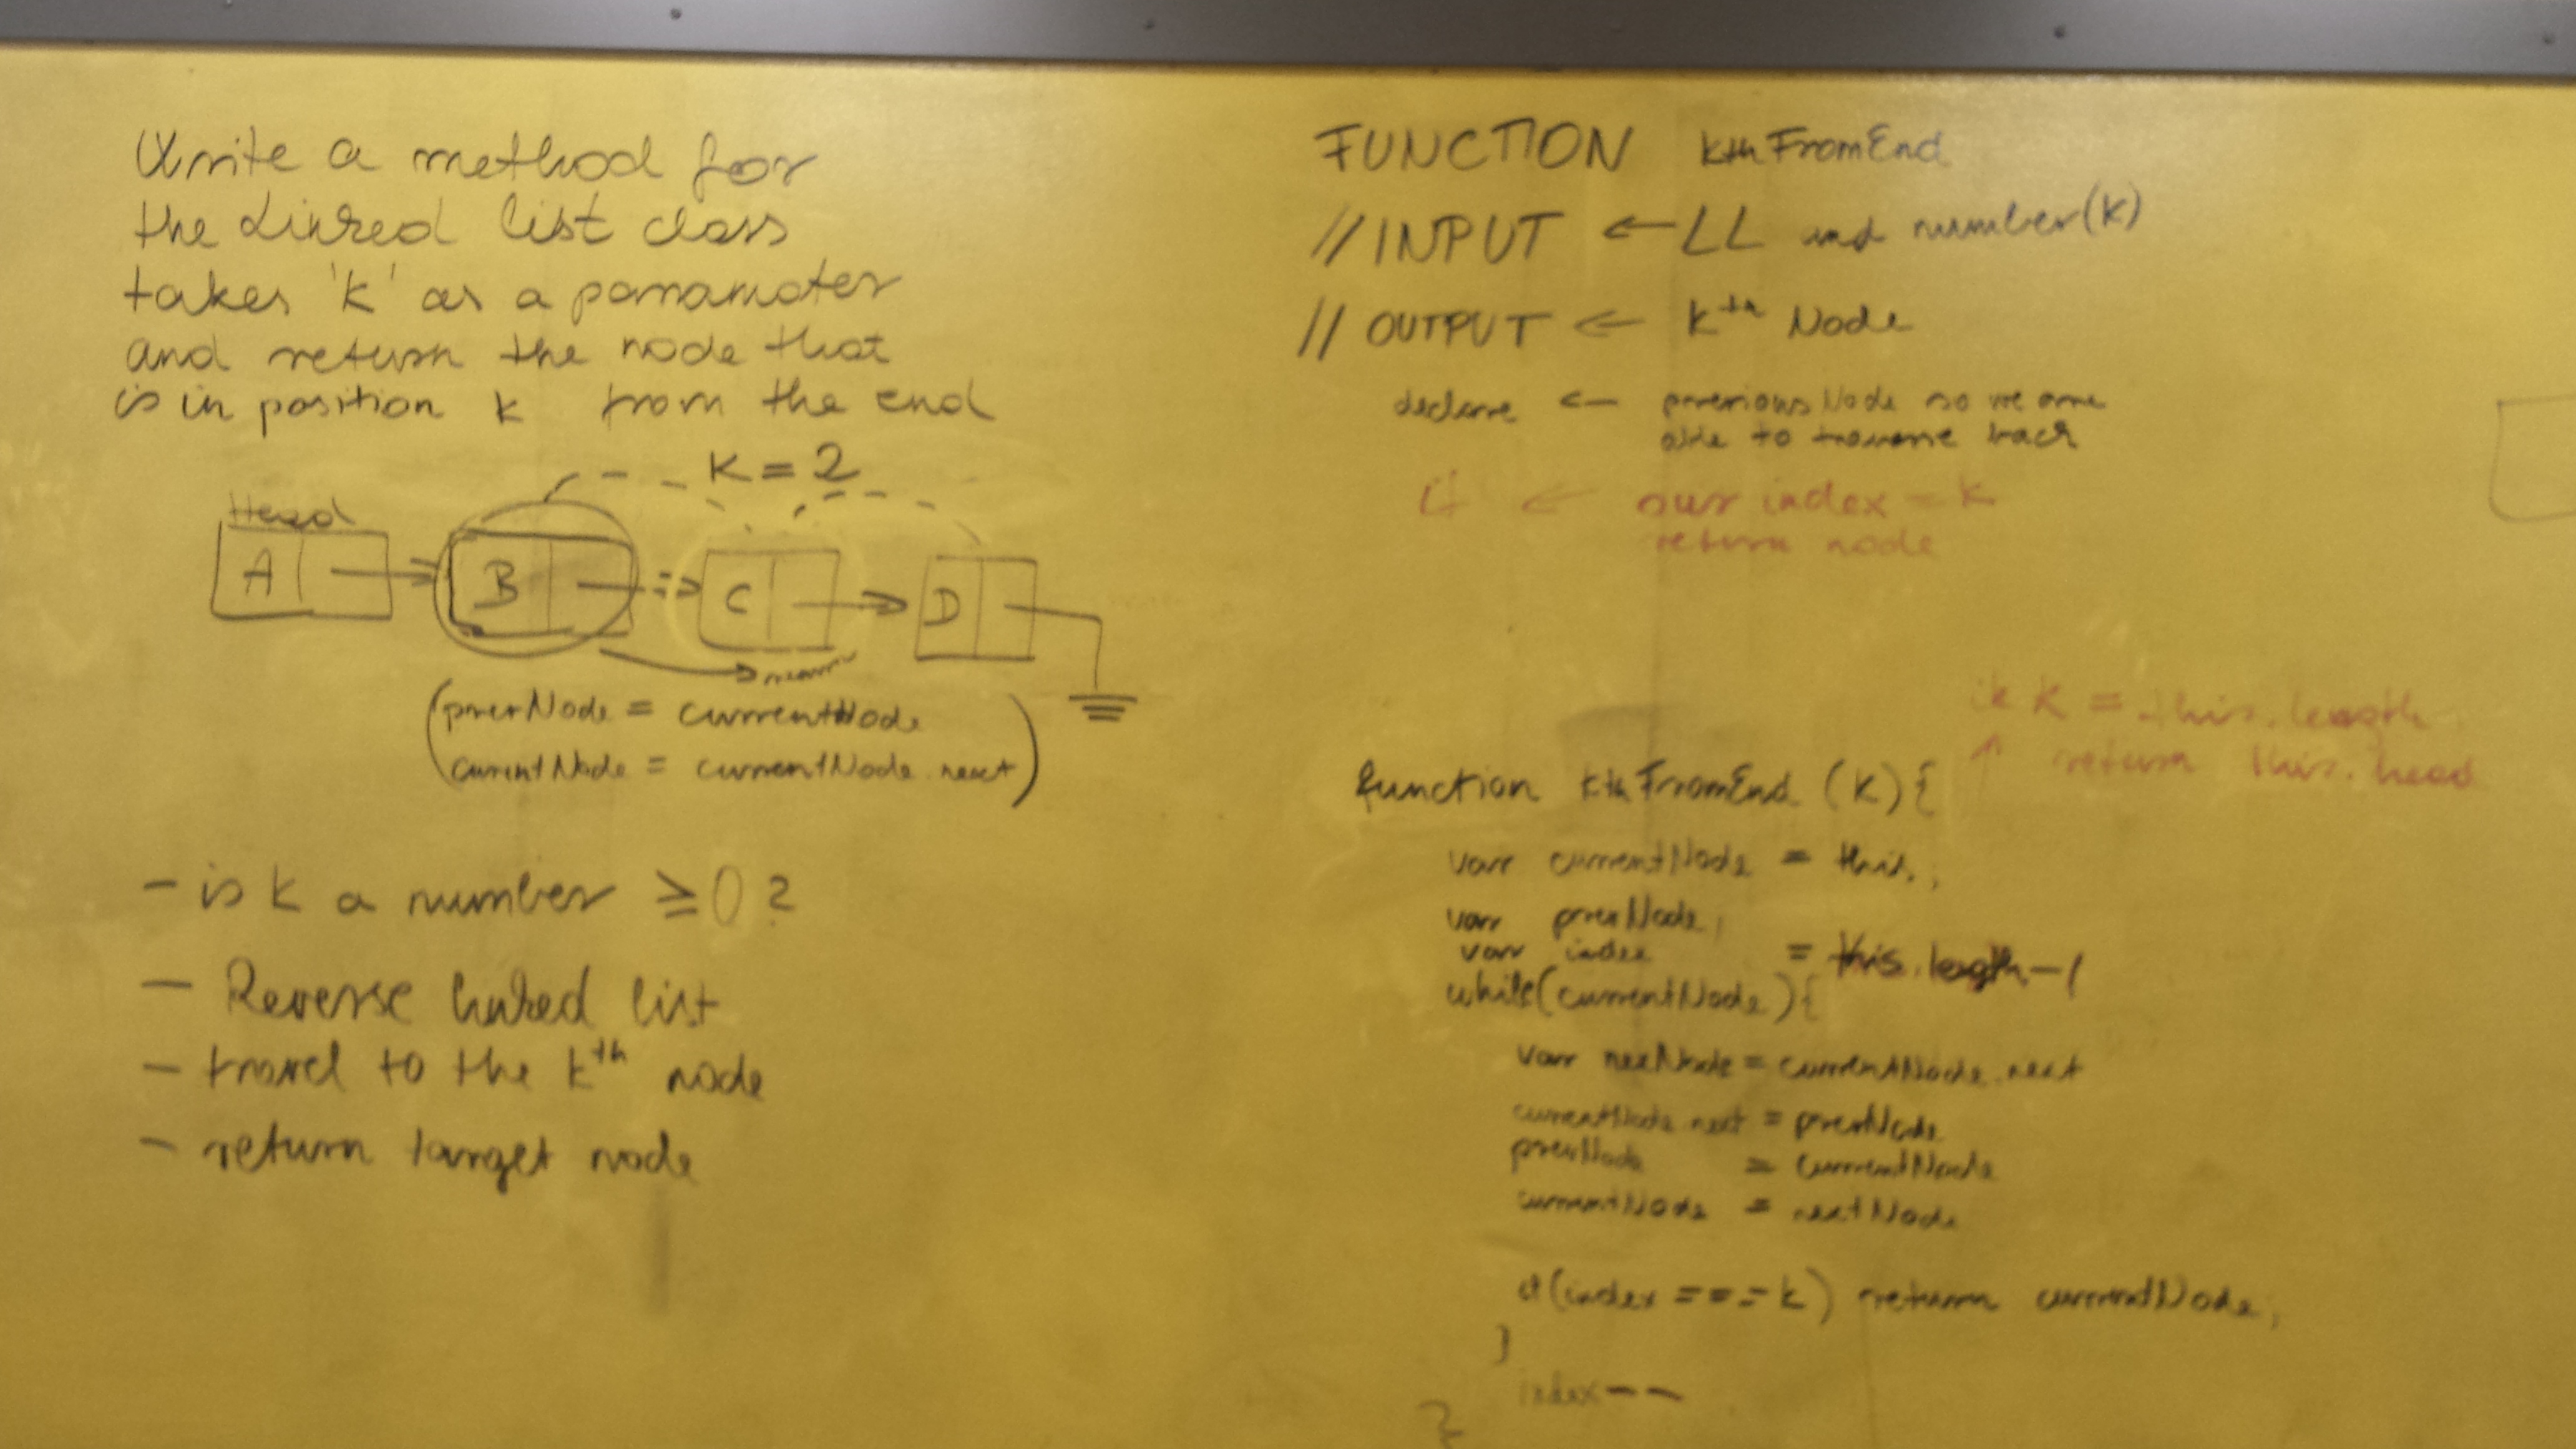 Write a method for
the Linked list class
takes 'k' as a paramater
and return the node that
is in position k from the end
K = 2
Head
A
B
C
D
(prevNode = currentNode
currentNode = currentNode.next)
- is k a number ≥0?
- Reverse linked list
- travel to the kth node
- return target node
FUNCTION kthFromEnd
// INPUT ← LL and number(k)
// OUTPUT ← kth Node
declare ← previousNode so we are
able to traverse back
if ← our index = k
return node
if K = this.length
↑ return this.head
function kthFromEnd (k){
var currentNode = this.;
var prevNode;
var index = this.length-1
while(currentNode){
var nextNode = currentNode.next
currentNode.next = prevNode
prevNode = currentNode
currentNode = nextNode
if(index === k) return currentNode;
}
index--
}